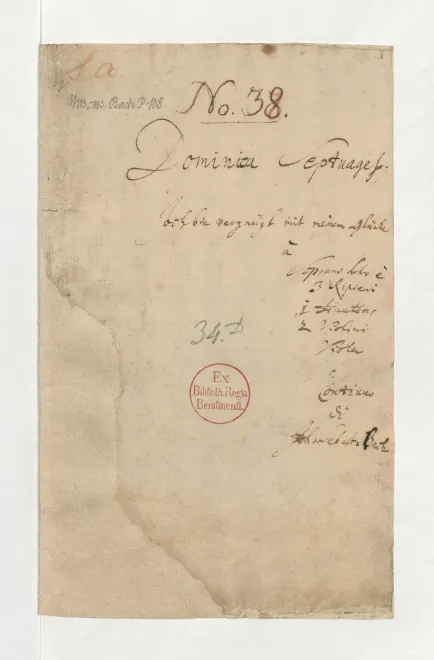 Mus. ms. Bach P 108
No. 38.
Dominica Septuages.
Ich bin vergnügt mit meinem Glücke
à
Soprano solo è
3 Ripieni
1 Hautbois
2 Violini
Viola
è
Continuo
di
Joh. Sebast. Bach
34.
Ex
Biblioth. Regia
Berolinensi.